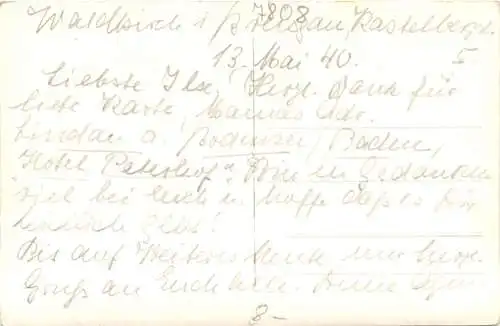 7808
Waldkirch i/ Breisgau, Kastelbergstr.
13. Mai 40. I
Liebste Ilse, Herzl. Dank für
liebe Karte, Mamas Adr.
Lindau a. Bodensee, Baden,
Hotel "Peterhof". Bin in Gedanken
viel bei Euch u. hoffe daß es
Bis auf Weiteres heute nur herzl.
Gruß an Euch alle.
8-